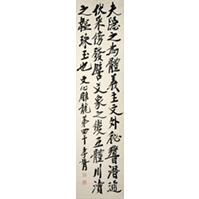 夫隱之為體義主文外秘響潛通
伏采傍發譬爻象之變互體川瀆
之韞珠玉也文心雕龍第四十